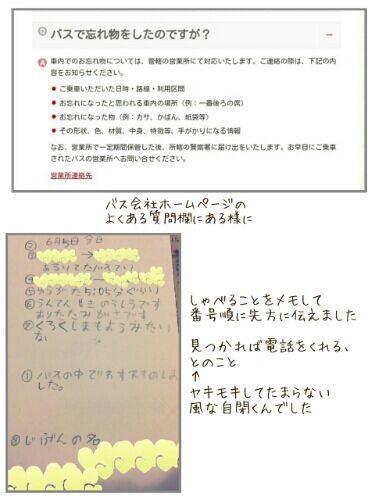 Q バスで忘れ物をしたのですが？
A 車内でのお忘れ物については、管轄の営業所にて対応いたします。ご連絡の際は、下記の内
容をお知らせください。
ご乗車いただいた日時・路線・利用区間
お忘れになったと思われる車内の場所（例：一番後ろの席）
お忘れになった物（例：カサ、かばん、紙袋等）
その形状、色、材質、中身、特徴等、手がかりになる情報
なお、営業所で一定期間保管した後、所轄の警察署に届け出をいたします。お早目にご乗車
されたバスの営業所へお問い合せください。
営業所連絡先
バス会社ホームページの
よくある質問欄にある様に
② 6月5日 今日
③ →
④
⑤ 5:05
⑥ うんてんせきのうしろです
おりたたみがさです
ない
① バスの中でわすれものしま
した。
⑧ じぶんの名
しゃべることをメモして
番号順に先方に伝えました
見つかれば電話をくれる、
とのこと
↑
ヤキモキしてたまらない
風な自閉くんでした